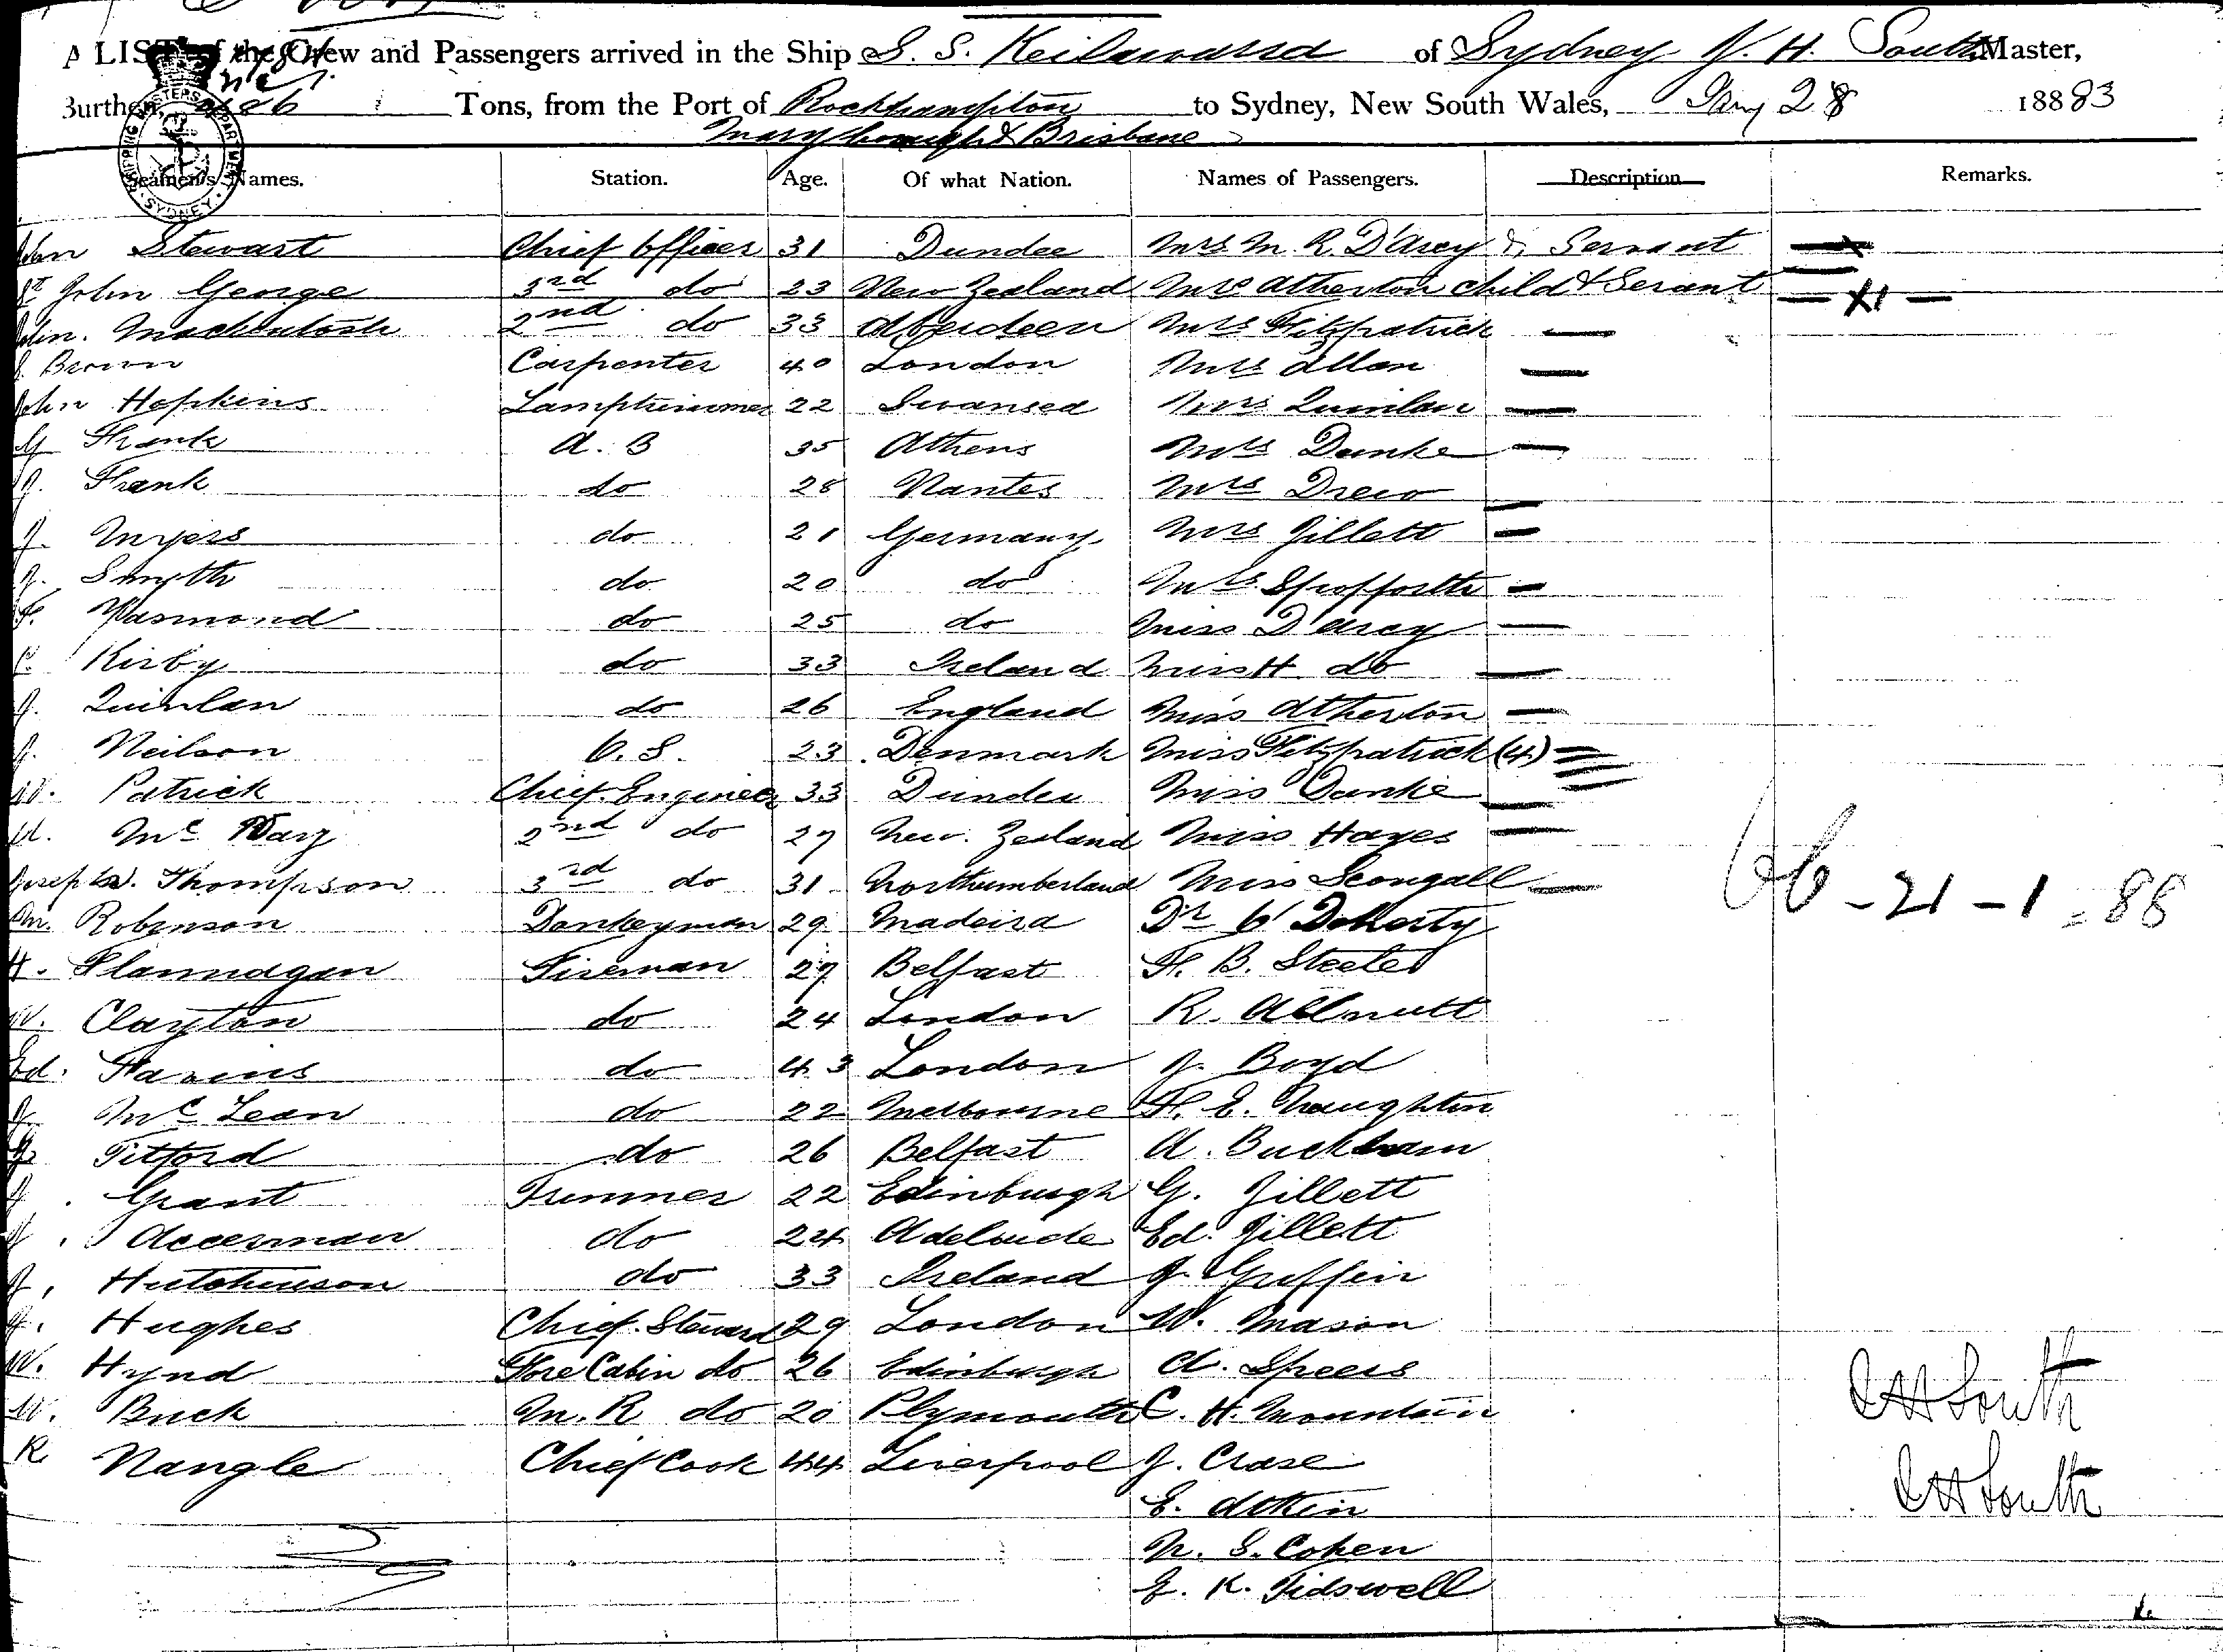 A LIST of the Crew and Passengers arrived in the Ship S. S. Keilawarra of Sydney J. H. South Master,
Burthen, Tons, from the Port of Rockhampton to Sydney, New South Wales, Jany 28 18883
Maryborough & Brisbane
SHIPPING MASTERS DEPARTMENT SYDNEY
Seamen's Names. Station. Age. Of what Nation. Names of Passengers. Description Remarks.
Stewart Chief Officer 31 Dundee Mrs M. R. D'Arcy & Servant
St John George 3rd do 23 New Zealand Mrs Atherton child & Servant
John. Mackintosh 2nd do 33 Aberdeen Mrs Fitzpatrick
J. Brown Carpenter 40 London Mrs Allan
John Hopkins Lamptrimmer 22 Swansea Mrs Quinlan
G Frank A. B 35 Athens Mrs Danke
J. Frank do 28 Nantes Mrs Drew
J. Myers do 21 Germany Mrs Jillett
J. Smyth do 20 do Mrs Spofforth
F. Wasmond do 25 do Miss D'arcy
C. Kirby do 33 Ireland Miss H do
J. Quinlan do 26 England Miss Atherton
J. Neilson O. S. 23 Denmark Miss Fitzpatrick (4)
W. Patrick Chief Engineer 33 Dundee Miss Danke
Mc 2nd do 27 New. Zealand Miss Hayes
Joseph W. Thompson 3rd do 31 Northumberland Miss Scongall
Wm. Robinson Donkeyman 29 Madeira Dr O'Doherty
H. Flannagan Fireman 27 Belfast F. B. Steele
W. Clayton do 24 London R. Allnutt
Ed. do 43 London J. Boyd
J. McLean do 22 Melbourne H. E. Naughtin
Titford do 26 Belfast A. Buckham
J. Grant Trimmer 22 Edinburgh G. Jillett
Accerman do 24 Adelaide Ed. Jillett
J. Hutchinson do 33 Ireland J. Griffin
J. Hughes Chief. Steward 29 London W. Mason
W. Hynd Fore Cabin do 26 Edinburgh A. Speers
W. Buck M. R do 20 Plymouth C. H. Mountain
R Nangle Chief Cook 44 Liverpool J. Crase
E. Atkin
N. S. Cohen
J. K. Tidswell
66 - 21 - 1 = 88
J H South
J H South